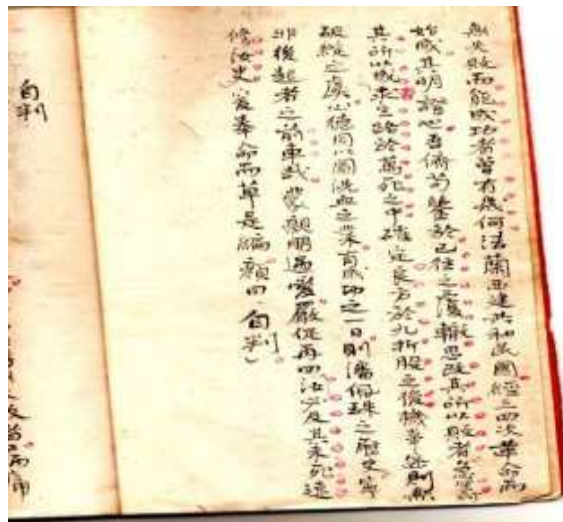 無失敗而能成功者曾有幾何法蘭西建共和民國經三四次革命而
始成其明證也吾儕苟鑒於已往之覆轍思改其所以敗者急籌
其所以成求生路於萬死之中確定良方於九折股之後機事密則無
破綻之虞心德同以圖洗血之業有成功之一日則潘佩珠之歷史寧
非後起者之前車哉蒙親朋過愛嚴促再四汝必及其未死速
修汝史爰奉命而草是編顏曰自判
自判